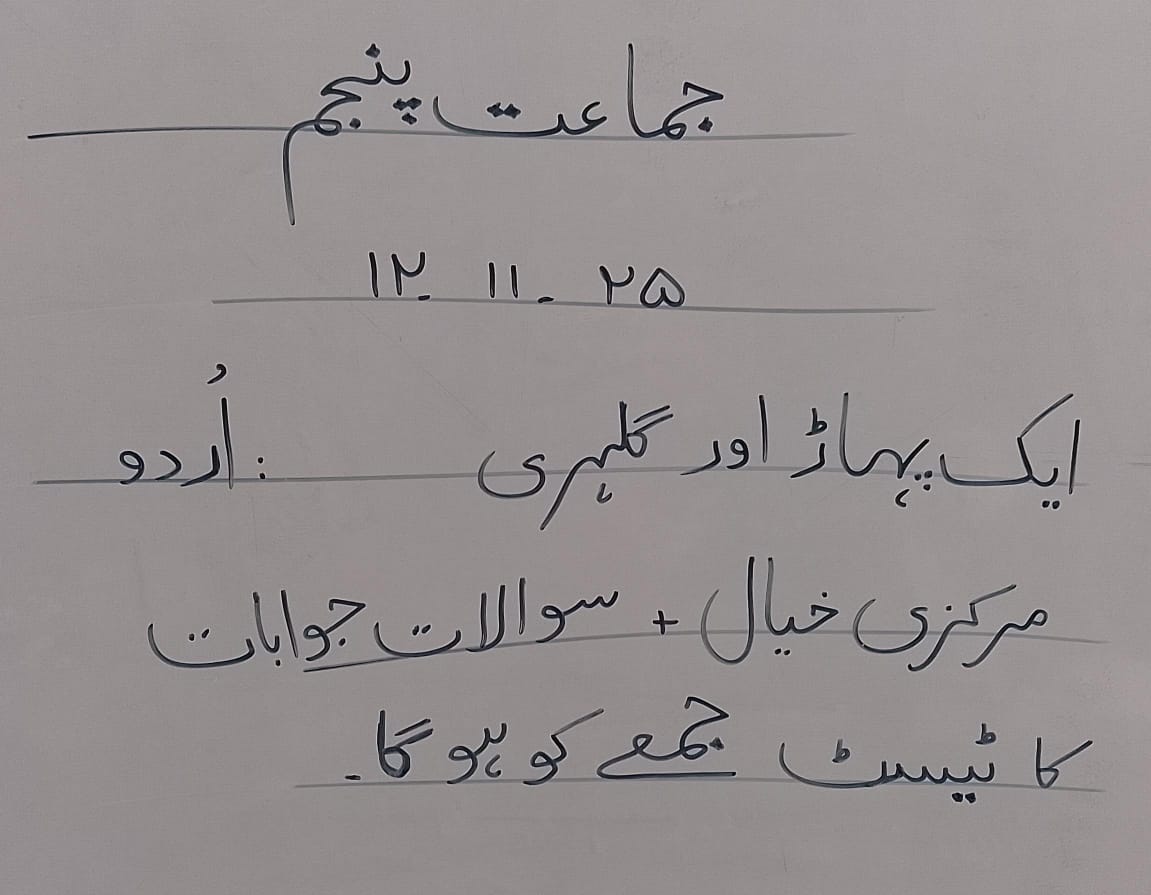 جماعت پنجم
۱۲. ۱۱. ۲۵
ایک پہاڑ اور گلہری :اُردو
مرکزی خیال + سوالات جوابات
کا ٹیسٹ جمعے کو ہو گا۔